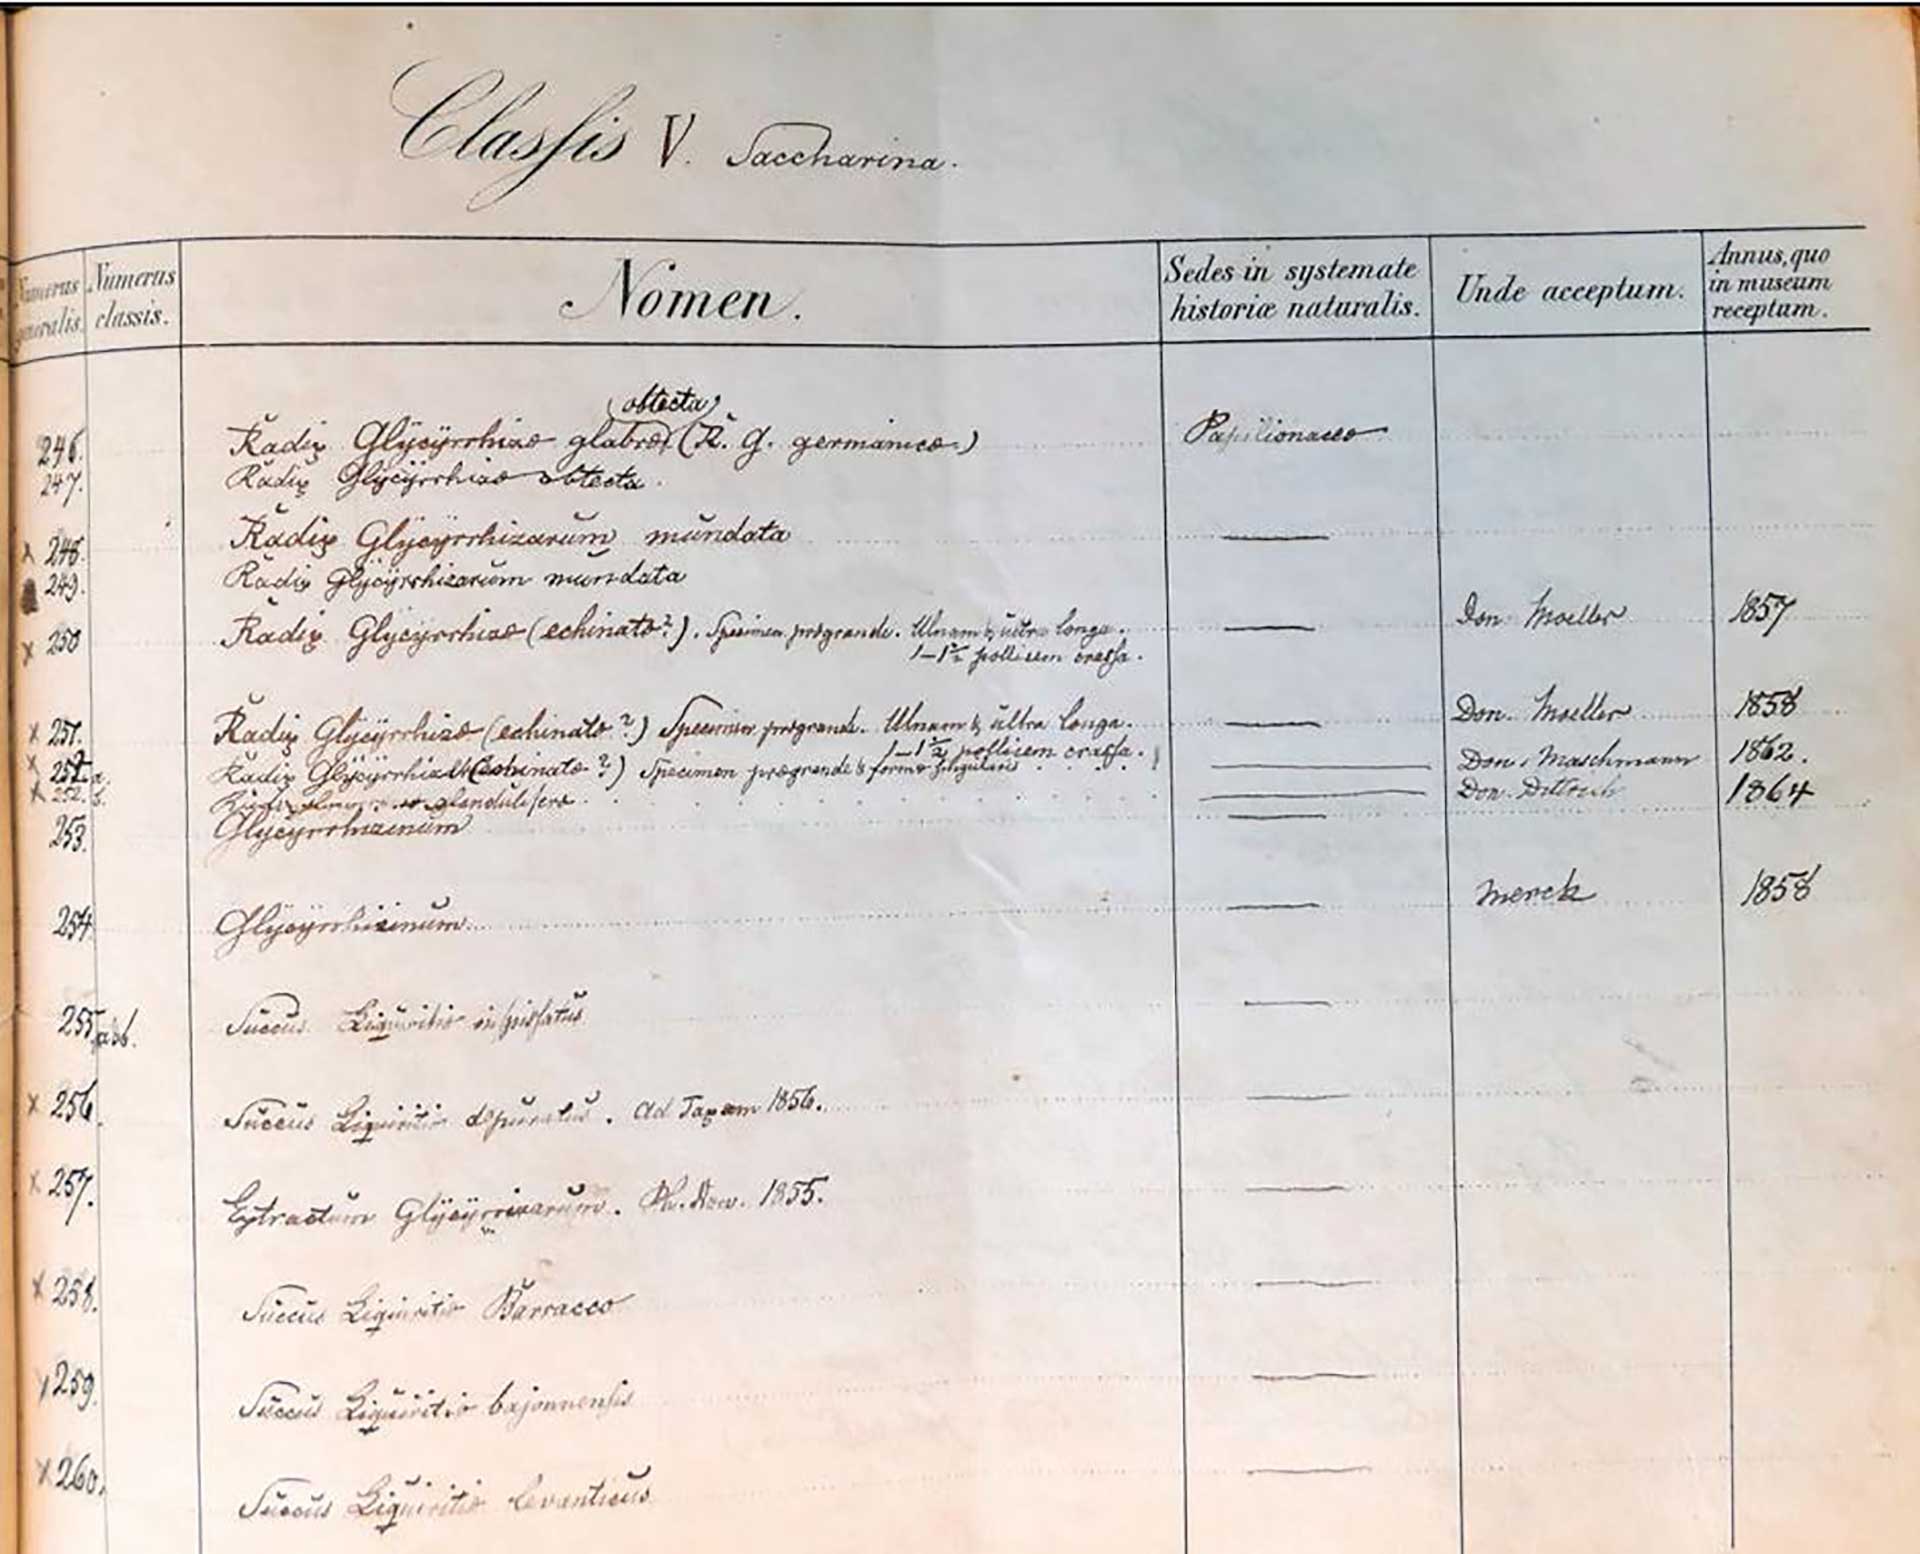 Classis V. Saccharina.
Numerus generalis. Numerus classis. Nomen. Sedes in systemate historiæ naturalis. Unde acceptum. Annus, quo in museum receptum.
(obtecta)
246. Radix Glycyrrhizæ glabræ (R. G. germanicæ.) Papilionaceæ
247. Radix Glycyrrhizæ obtecta.
x 248. Radix Glycyrrhizarum mundata —
249. Radix Glycyrrhizarum mundata
x 250 Radix Glycyrrhizæ (echinatæ?). Specimen prægrande. Ulnam & ultra longa. — Don. Moeller 1857
1–1½ pollicem crassa.
x 251. Radix Glycyrrhizæ (echinatæ?) Specimen prægrande. Ulnam & ultra longa. — Don. Moeller 1858
1–1½ pollicem crassa.
x 252. a. Radix Glycyrrhizæ (echinatæ?) Specimen prægrande & formæ singularis — Don. Maschmann 1862.
x 252. b. glanduliferæ — Don. Dittrich 1864
253. Glycyrrhizinum —
254. Glycyrrhizinum — Merck 1858
255 a & b. Succus Liquiritiæ inspissatus —
x 256. Succus Liquiritiæ depuratus. Ad Taxam 1856. —
x 257. Extractum Glycyrrizarum. Ph. Nov. 1855. —
x 258. Succus Liquiritiæ Barracco —
x 259. Succus Liquiritiæ bajonnensis —
x 260. Succus Liquiritiæ levanticus —